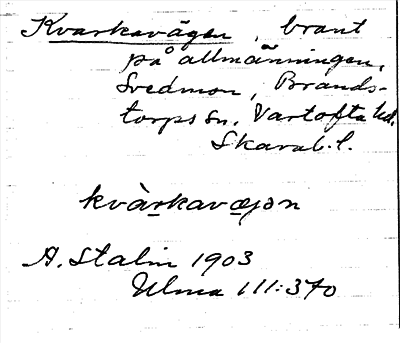 Kvarkavägen, brant
på allmänningen,
Svedmon, Brands-
torps sn, Vartofta hd.
Skarab. l.
kvàrkavægən
A. Stalin 1903
Ulma 111:370